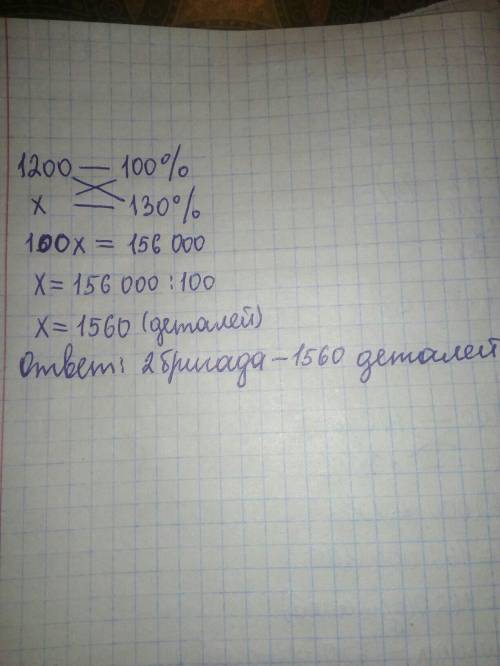 1200 — 100%
x — 130%
100x = 156 000
x = 156 000 : 100
x = 1560 (деталей)
Ответ: 2 бригада – 1560 деталей